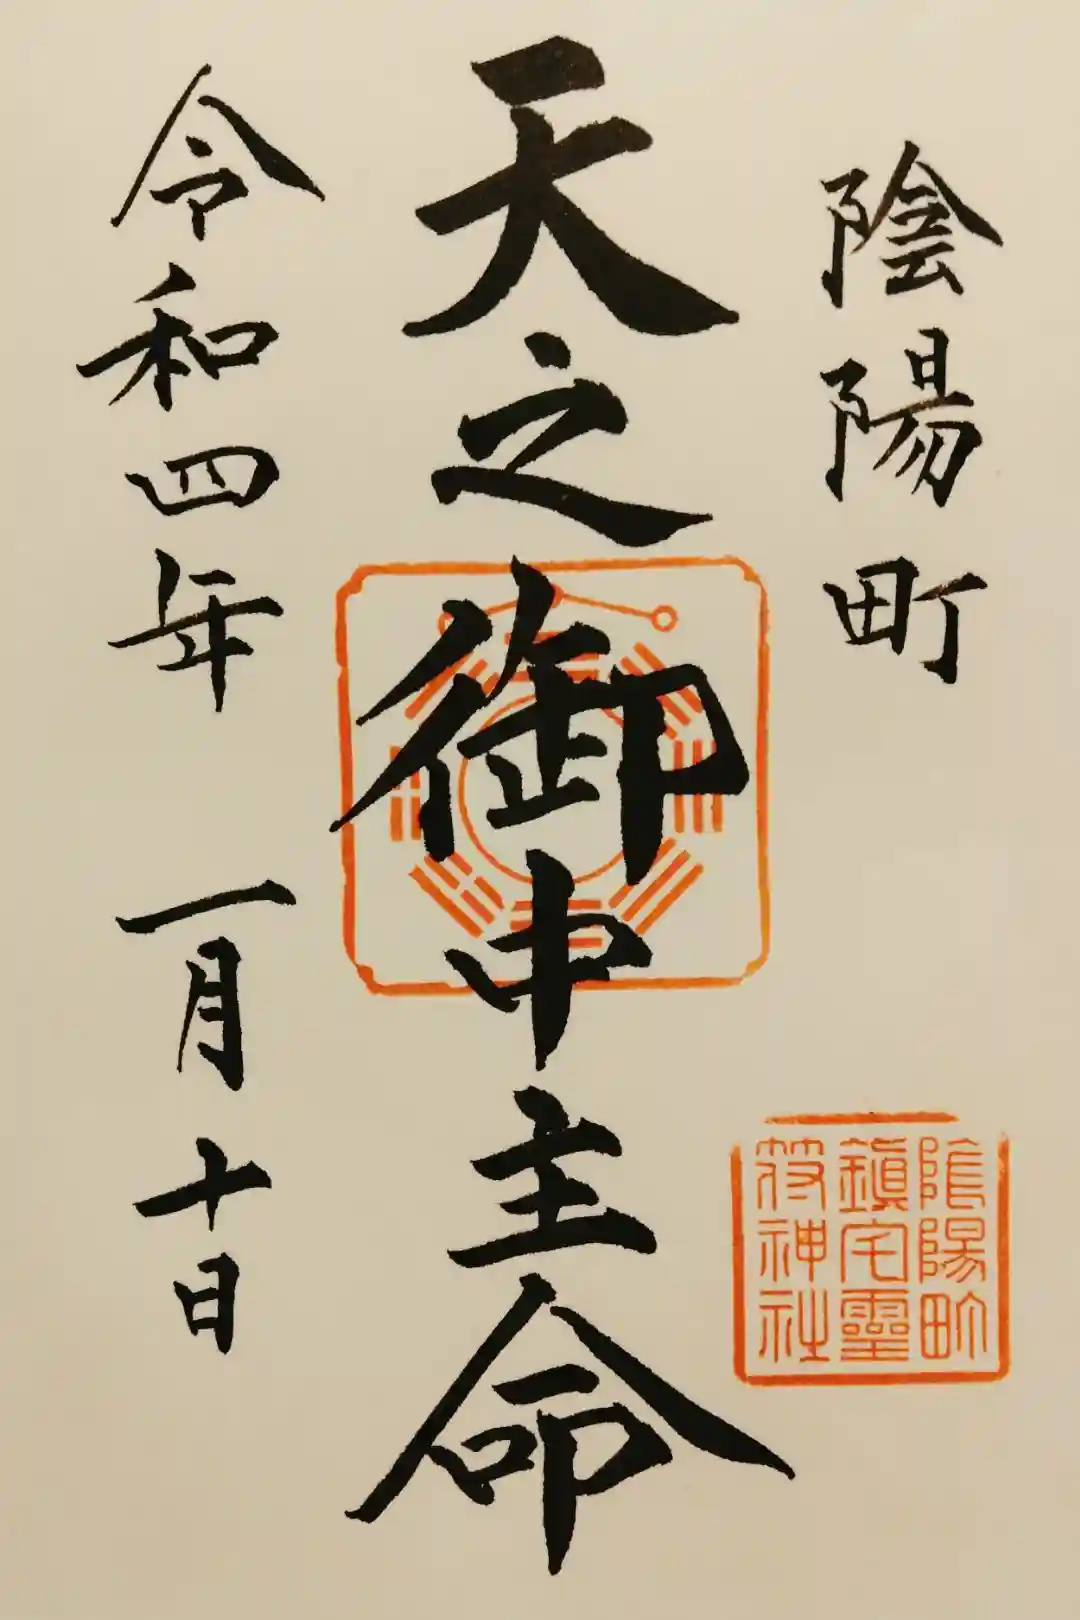 陰陽町
天之御中主命
令和四年 一月十日
陰陽町
鎮宅霊
符神社